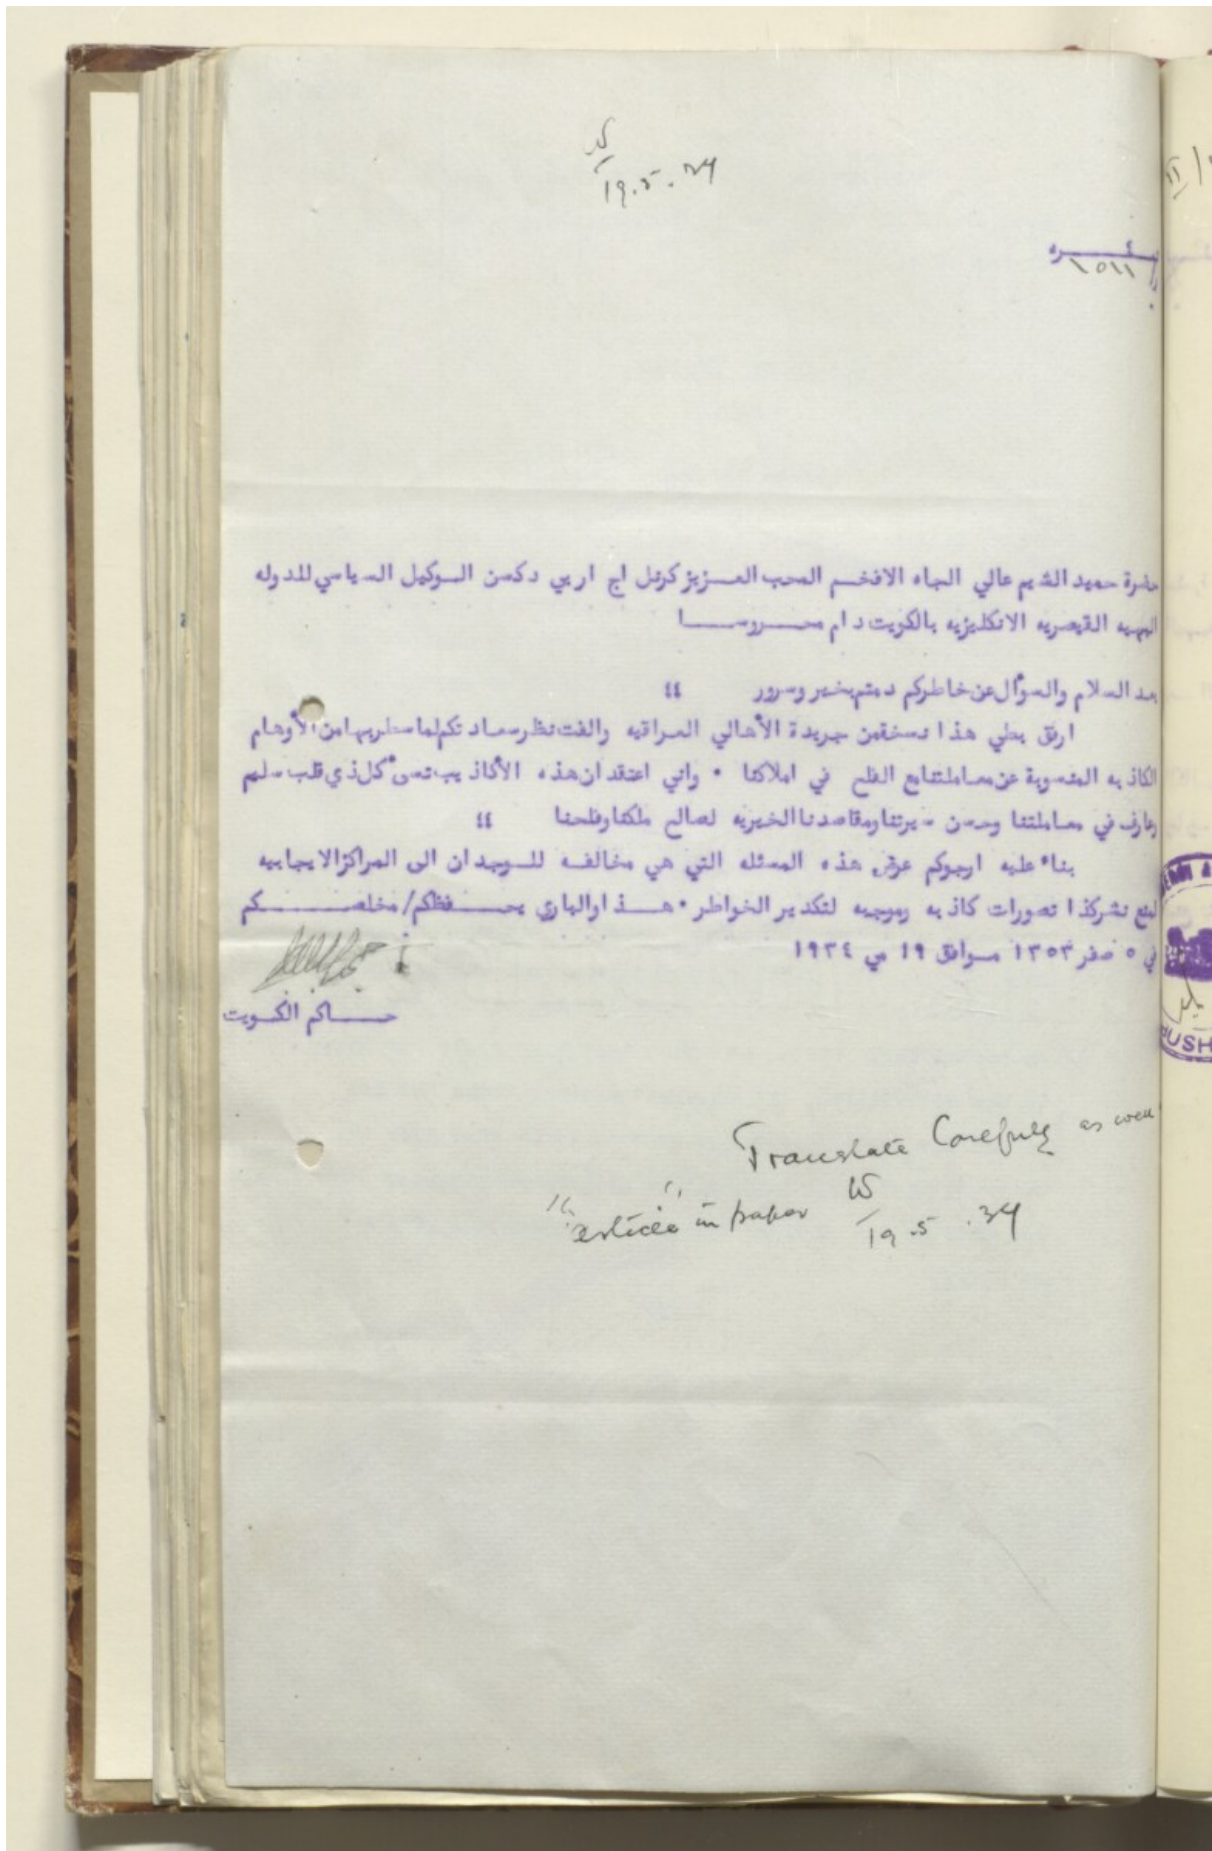 19.5.34
نمـــــره
حضرة حميد الشيم عالي الجاه الافخـم المحب العـزيز كرنل اج اربي دكسن الـوكيل السياسي للدوله
البهيه القيصريه الانكليزيه بالكويت دام محــروســـا
بعد السلام والسوأل عن خاطركم دمتم بخير وسرور ؛؛
ارفق بطي هذا نسخة من جريدة الأهالي العراقيه والفت نظر سعادتكم لما سطر بها من الأوهام
الكاذبه المنسوبة عن معاملتنا مع الفلح في املاكنا ٠ واني اعتقد ان هذه الأكاذيب تسئ كل ذي قلب سليم
وعارف في معاملتنا وحسن سيرتنا ومقاصدنا الخيريه لصالح ملكنا وفلحنا ؛؛
بناء عليه ارجوكم عرض هذه المسئله التي هي مخالفـه للـوجدان الى المراكز الايجابيه
لمنع نشر كذا تصورات كاذبه وموجبه لتكدير الخواطر ٠ هــذا والباري يحــفظكم/ مخلصــــكم
في ٥ صفر ١٣٥٣ مـوافق ١٩ مي ١٩٣٤
حـــاكم الكـويت
Translate Carefully as well
"article" in paper
19.5.34
USH